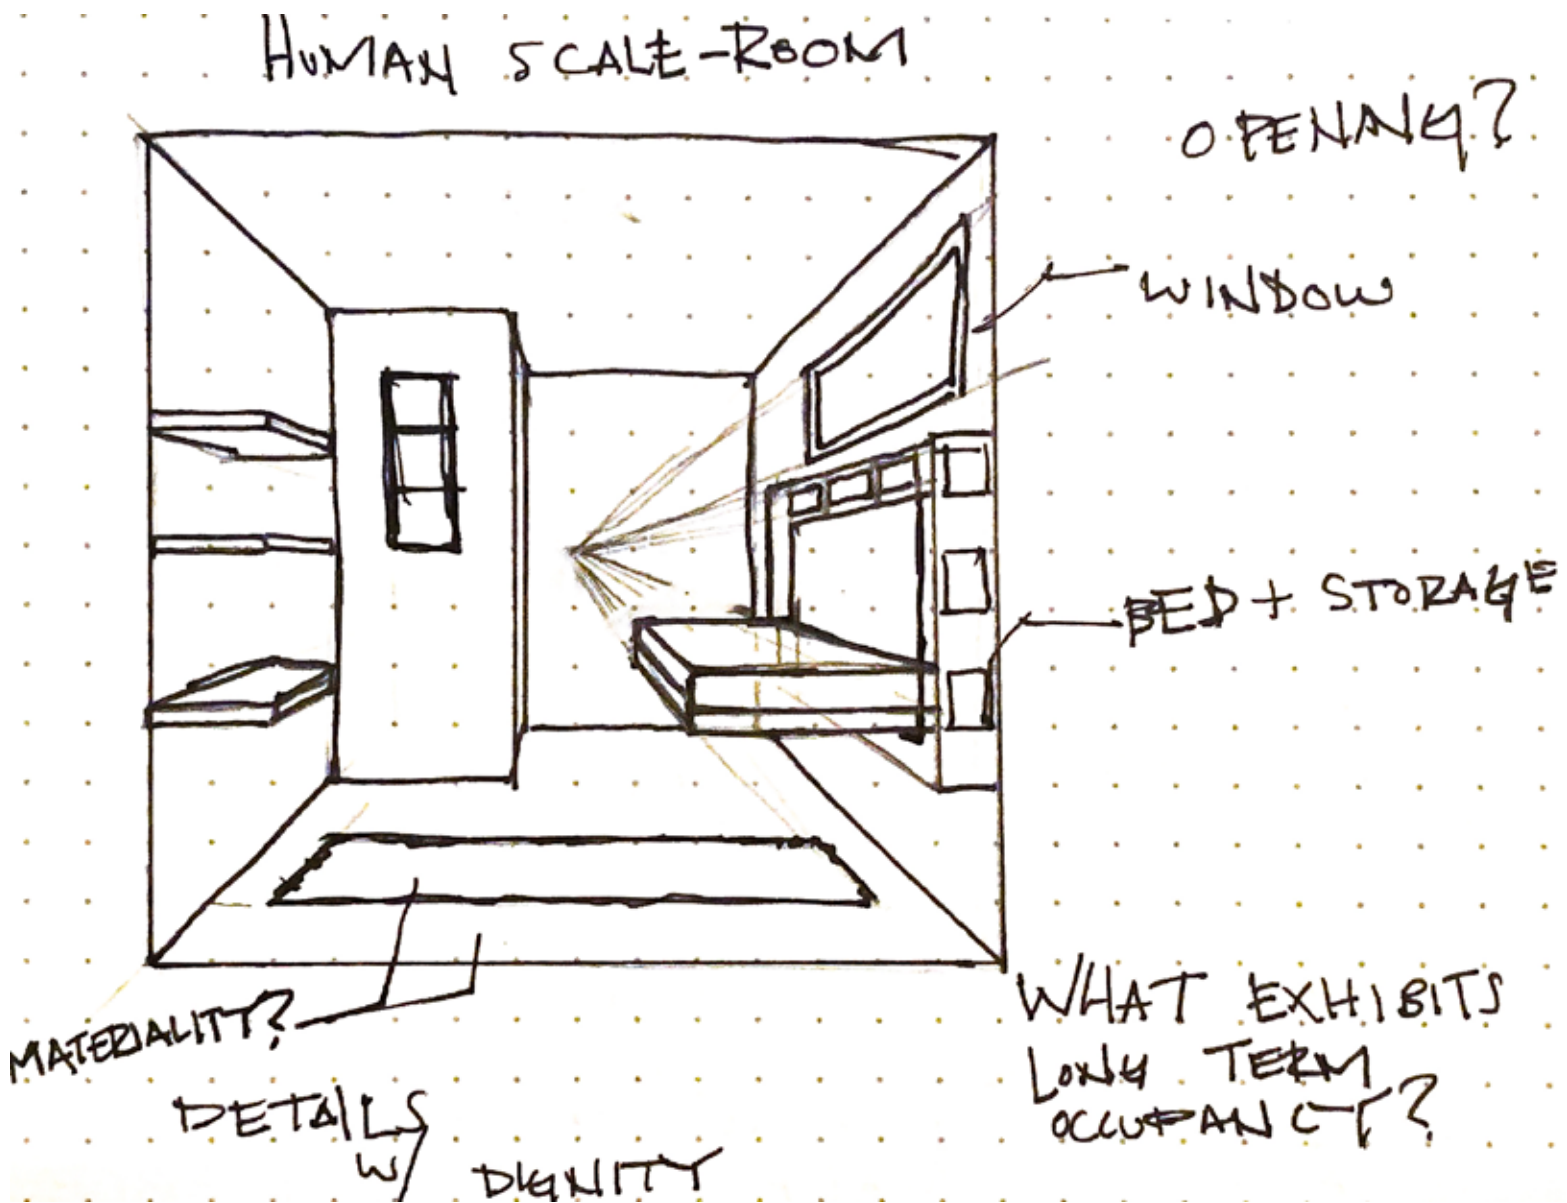 HUMAN SCALE-ROOM
OPENING?
WINDOW
BED + STORAGE
MATERIALITY?
DETAILS
W/ DIGNITY
WHAT EXHIBITS
LONG TERM
OCCUPANCY?